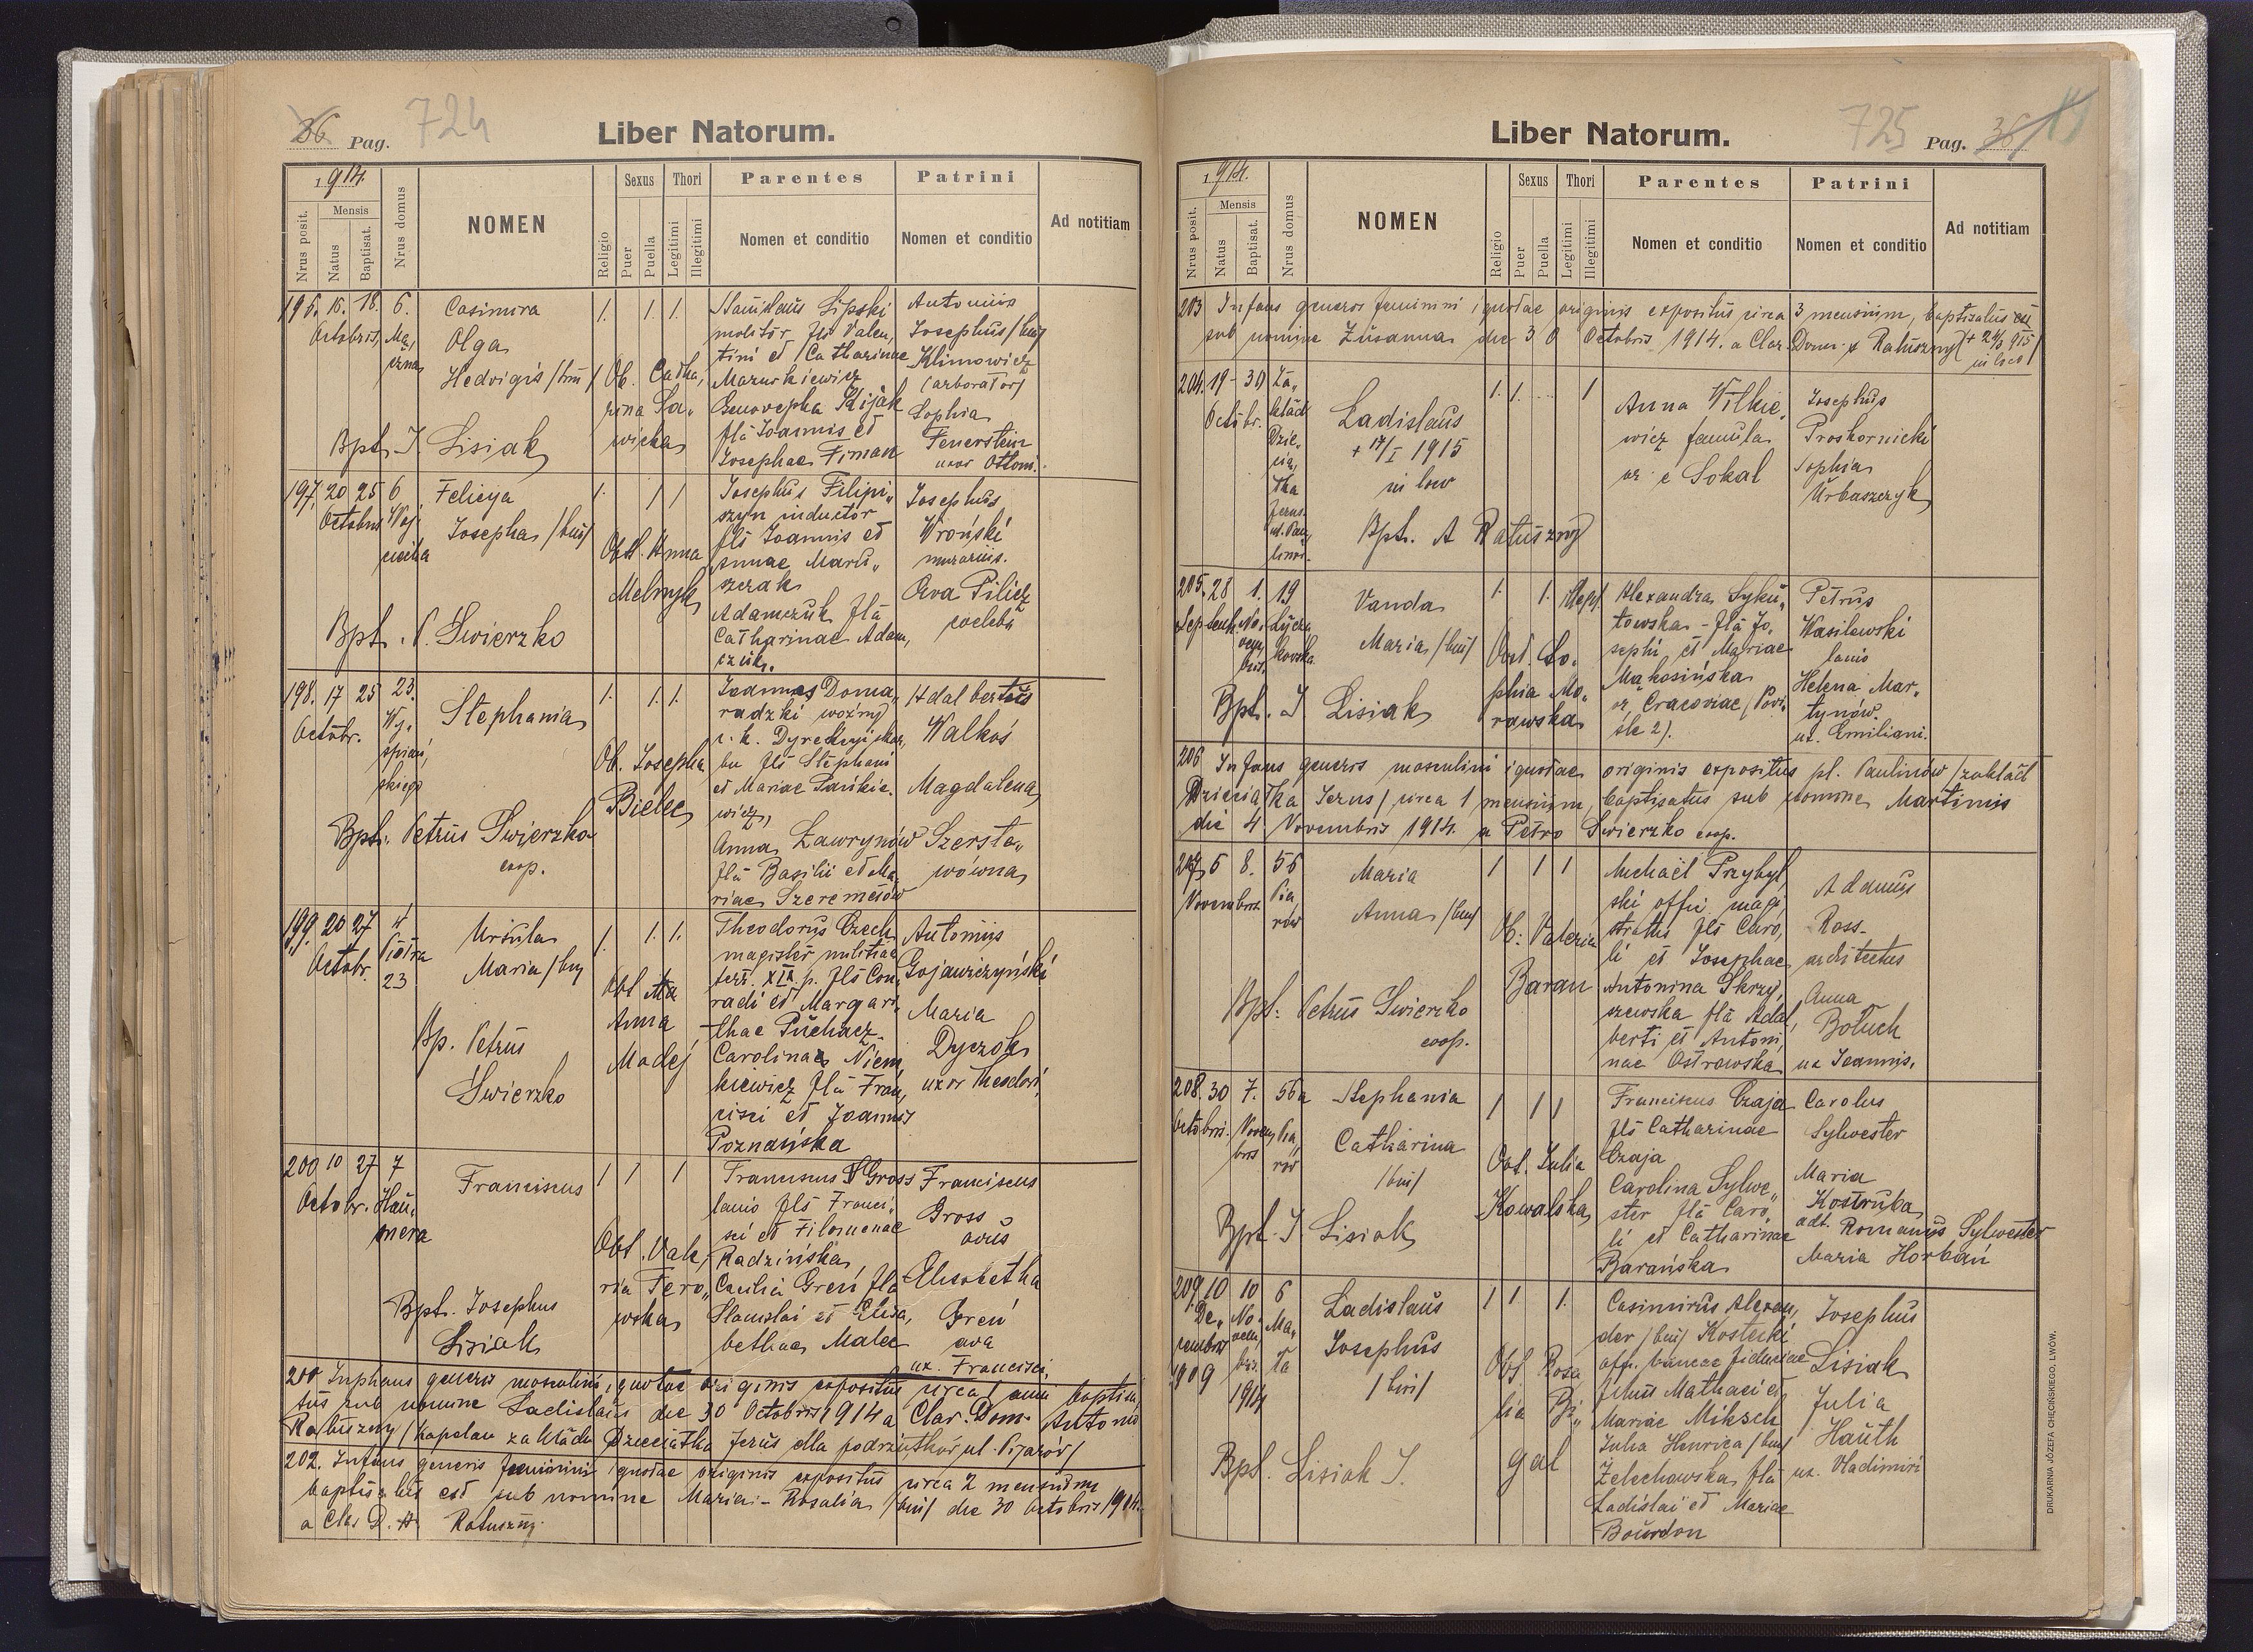 36 Pag. 724 Liber Natorum.
1914.
Nrus posit. Mensis Natus Baptisat. Nrus domus NOMEN Religio Sexus Puer Puella Thori Legitimi Illegitimi Parentes Nomen et conditio Patrini Nomen et conditio Ad notitiam
196. 15. 18. 6.
Octobris,
Casimira
Olga
Hedvigis /trii/
Bpt. J. Lisiak
1. 1. 1.
Ob. Catha,
rina Sa,
wicka
Stanislaus Lipski
molitor fls Valen,
tini et Catharinae
Mazurkiewicz
Genovepha Kijak
fla Joannis et
Josephae Firman
Antonius
Josephus /bin/
Klimowicz
/arborator/
Sophia
Feuerstein
uxor Ottoni.
197. 20 25 6
Octobris
Felicya
Josepha /bin/
Bpt. P. Swierzko
1. 1 1
Obst. Anna
Melnyk
Josephus Filipi,,
szyn inductor
fls Joannis et
Annae Mari,,
szczak
Adamczuk fla
Catharinae Adam,
czuk.
Josephus
Wroński
murarius.
Eva Pilicz
coelebs
198. 17 25 23.
Octobr. Wy,
spiań,
skiego
Stephania
Bpt. Petrus Swierzko
coop.
1. 1. 1.
Ob. Josepha
Bielec
Joannes Doma,,
radzki woźny
c. k. Dyrekcyi skar,
bu fls Stephani
et Mariae Pańkie,
wicz,
Anna Ławrynów
fla Basilii et Ma,
riae Szeremetów
Adalbertus
Walkoś
Magdalena
Szerste,,
wówna
199. 20 27 4
Octobr. Piotra
23
Ursula
Maria /bin/
Bp. Petrus
Swierzko
1. 1. 1.
Obst
Anna
Madej
Theodorus Czech
magister militiae
terr. XIX p. fls Con,
radi et Margari,
thae Puchacz
Carolina Niem,
kiewicz fla Fran,
cisci et Joannis
Poznańska
Antonius
Gojawiczyński
Maria
Dyczok
uxor Theodori,
200. 10 27 7
Octobr. Hau,
snera
Franciscus
Bpt. Josephus
Lisiak
1 1 1
Obst. Vale,
ria Tero,,
wska
Franciscus Gross
lanio fls Franci,
sci et Filomenae
Radzińska,
Cecilia Greń fla
Stanislai et Elisa,
bethae Malec
Franciscus
Gross
avus
Elisabetha
Greń
ava
ux. Francisci,
201. Inphans generis masculini, ignotae originis expositus circa 1 anni baptisa,
tus sub nomine Ladislaus die 30 Octobris 1914 a Clar. Dom. Antonio
Ratuszny /kapelan zakładu Dzieciątka Jezus dla podrzutków ul. Pijarów/
202. Infans generis feminini ignotae originis expositus circa 2 mensium
baptisatus est sub nomine Maria - Rosalia /bin/ die 30 octobris 1914.
a Clar. D. A Ratuszny.
Liber Natorum. 725 Pag. 36
1914.
Nrus posit. Mensis Natus Baptisat. Nrus domus NOMEN Religio Sexus Puer Puella Thori Legitimi Illegitimi Parentes Nomen et conditio Patrini Nomen et conditio Ad notitiam
203 Infans generis feminini ignotae originis expositus circa 3 mensium, baptisatus est
sub nomine Zusanna die 30 Octobris 1914. a Clar. Dom. A Ratuszny
in loco/
204. 19 - 30 Za,,
Octobr. kład
Dzie,,
cią,
tka
Jezus
Ladislaus
+ 17/I 1915
in loco
Bpt. A Ratuszny
1. 1. 1
Anna Wilkie,
wicz famula
or. e Sokal
Josephus
Proskornicki
Sophia
Urbaszczyk
205. 28 1. 19
Septemb. No,
vem,
bris Łycza
kowska
Vanda
Maria, /bin/
Bpt. J. Lisiak
1. 1. illegit.
Obst. So,
phia Mo,,
rawska
Alexandra Syku,,
towska - fla Jo,
sephi et Mariae
Makosińska
or. Cracoviae /Powi,
śle 2).
Petrus
Wasilewski
lanio
Helena Mar,
tynów.
ux. Emiliani.
206 Infans generis masculini ignotae originis expositus pl. Paulinów /zakład
Dzieciątka Jezus/ circa 1 mensium, baptisatus sub nomine Martinus
die 4. Novembris 1914. a Petro Swierzko coop.
207 5 8. 56
Novembris Pia,
rów
Maria
Anna /bin/
Bpt: Petrus Swierzko
coop.
1 1 1
Ob: Valeria
Baran
Michaël Przybyl,
ski offic. magi,
stratus fls Caro,
li et Josephae
Antonina Skrzy,
szewska fla Adal,
berti et Antoni,
nae Ostrowska
Adamus
Ross-
architectus
Anna
Botuch
ux Joannis.
208. 30 7. 56a
Octobris. Novem
bris Pia,
rów
Stephania
Catharina
/bin/
Bpt. J. Lisiak
1 1 1
Obst. Julia
Kowalska
Franciscus Czaja
fls Catharinae
Czaja
Carolina Sylwe,,
ster fla Caro,
li et Catharinae
Barańska
Carolus
Sylwester
Maria
Kostruba
adt. Romanus Sylwester
Maria Horbań
209. 10 10 6
De,, No,
cembris vem,
bris
1909 1914
Ladislaus
Josephus
/bin/
Bpt. Lisiak J.
1 1 1.
Obst. Rosa
lia Bi,,
gal
Casimirus Alexan,
der /bin/ Kostecki
off. bancae fiduciae
filius Mathaei et
Mariae Miksch
Julia Henrica /bin/
Żelechowska fla
Ladislai et Mariae
Bourdon
Josephus
Lisiak
Julia
Hauth
ux. Vladimiri
DRUKARNIA JÓZEFA CHĘCIŃSKIEGO, LWÓW.